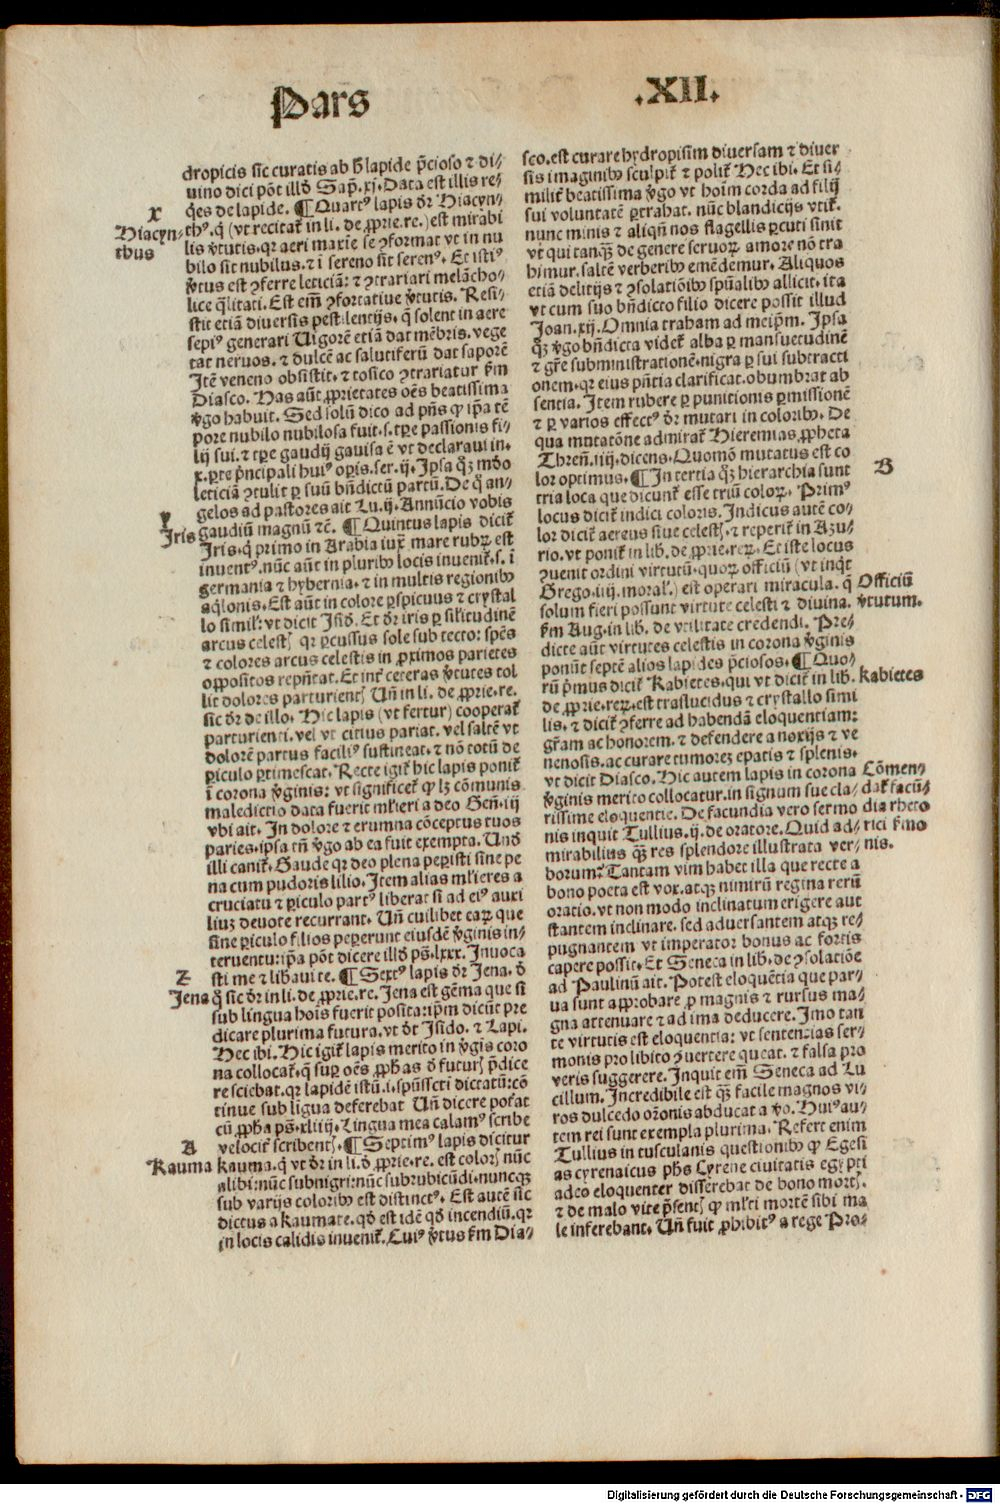 Pars
.XII.
dropicis sic curatis ab h̄ lapide p̄cioso ⁊ di⸗
uino dici pōt illđ Sap̄.xj. Data est illis re⸗
q̄es de lapide. ¶ Quart⁹ lapis dr̄ Hiacyn⸗
th⁹. q̄ (vt recitat᷑ in li. de ꝓprie.re.) est mirabi
lis v̄tutis. qr aeri maxie se ꝯformat vt in nu
bilo sit nubilus. ⁊ ī sereno sit seren⁹. Et isti⁹
v̄tus est ꝯferre leticiā: ⁊ ꝯtrariari melācho⸗
lice q̄litati. Est em̄ ꝯfortatiue v̄tutis. Resi⸗
stit etiā diuersis pestilentijs. q̄ solent in aere
sepi⁹ generari Uigorē etiā dat mēbris. vege
tat neruos. ⁊ dulcē ac salutiferū dat saporē
Itē veneno obsistit. ⁊ tosico ꝯtrariatur km̄
Diasco. Has aūt ꝓprietates oēs beatissima
v̄go habuit. Sed solū dico ad pn̄s ꝙ ip̄a tē
pore nubilo nubilosa fuit. s. tꝑe passionis fi⸗
lij sui. ⁊ tꝑe gaudij gauisa ē vt declaraui in.
x. ꝑte p̄ncipali hui⁹ oꝑis. ser.ij. Ipsa q̄ȝ mō
leticiā ꝯtulit ꝑ suū bn̄dictū partū. De q̄ an⸗
gelos ad pastores ait Lu.ij. Annūcio vobis
gaudiū magnū ⁊c̄. ¶ Quintus lapis dicit᷑
Iris. q̄ primo in Arabia iux̄ mare rubꝝ est
inuent⁹. nūc aūt in pluribꝰ locis inuenit᷑. s. ī
germania ⁊ hybernia. ⁊ in multis regionibꝰ
aq̄lonis. Est aūt in colore ꝑspicuus ⁊ crystal
lo simil᷑: vt dicit Isiđ. Et dr̄ iris ꝑ sil᷑itudinē
arcus celestꝭ qr ꝑcussus sole sub tecto: spēs
⁊ colores arcus celestis in ꝓximos parietes
oppositos repn̄tat. Et int᷑ ceteras v̄tutes tol
lit dolores parturientꝭ Un̄ in li. de ꝓprie.re.
sic dr̄ de illo. Hic lapis (vt fertur) cooperat᷑
parturienti. vel vt citius pariat. vel saltē vt
dolorē partus facili⁹ sustineat. ⁊ nō totū de
ꝑiculo ꝑtimescat. Recte igit᷑ hic lapis ponit᷑
ī corona v̄ginis: vt significet᷑ ꝙ lȝ cōmunis
maledictio data fuerit ml᷑ieri a deo Gen̄.iij
vbi ait. In dolore ⁊ erumna cōceptus tuos
paries. ipsa tn̄ v̄go ab ea fuit exempta. Unđ
illi canit᷑. Gaude qr deo plena peꝑisti sine pe
na cum pudoris lilio. Item alias ml᷑ieres a
cruciatu ⁊ ꝑiculo part⁹ liberat si ad ei⁹ auxi
liuȝ deuote recurrant. Un̄ cuilibet eaꝝ que
sine ꝑiculo filios peꝑerunt eiusdē v̄ginis in⸗
teruentu: ip̄a pōt dicere illđ ps̄.lxxx. Inuoca
sti me ⁊ lib̄aui te. ¶ Sext⁹ lapis dr̄ Jena. đ
q̄ sic dr̄ in li. de ꝓprie.re. Jena est gēma que si
sub lingua hoīs fuerit posita: ip̄m dicūt pre
dicare plurima futura. vt dt̄ Isido. ⁊ Lapi.
Hec ibi. Hic igit᷑ lapis merito in v̄gīs coro
na collocat᷑. q̄ suꝑ oēs ꝓph̄as đ futurꝭ p̄dice
re sciebat. qr lapidē istū. i. sp̄ussctī dictatū: cō
tinue sub līgua deferebat Un̄ dicere poīat
cū ꝓph̄a ps̄.xliiij. Lingua mea calam⁹ scribe
velocit᷑ scribentꝭ. ¶ Septim⁹ lapis dicitur
Kauma. q̄ vt dr̄ in li. đ ꝓprie.re. est colorꝭ nūc
alibi: nūc subnigri: nūc subrubicūdi. nuncqȝ
sub varijs coloribꝰ est distinct⁹. Est autē sic
dictus a Kaumate. qđ est idē qđ incendiū. qr
in locis calidis inuenit᷑. Cui⁹ v̄tus km̄ Dia⸗
x
Hiacyn⸗
thus
y
Iris
z
Jena
A
Kauma
sco. est curare hydropisim diuersam ⁊ diuer
sis imaginibꝰ sculpit᷑ ⁊ polit᷑ Hec ibi. Et si⸗
milit᷑ beatissima v̄go vt hoīm corda ad filij
sui voluntatē ꝑtrahat. nūc blandicijs vtit᷑.
nunc minis ⁊ aliqn̄ nos flagellis ꝑcuti sinit
vt qui tanqȝ̄ de genere seruoꝝ amore nō tra
himur. saltē verberibꝰ emēdemur. Aliquos
etiā delitijs ⁊ ꝯsolatiōibꝰ spūalibꝰ allicit. ita
vt cum suo bn̄dicto filio dicere possit illud
Joan.xij. Omnia traham ad meip̄m. Ipsa
q̄ȝ v̄go bn̄dicta videt᷑ alba ꝑ mansuetudinē
⁊ gr̄e subministrationē. nigra ꝑ sui subtracti
onem. qr eius pn̄tia clarificat. obumbrat ab
sentia. Item rubere ꝑ punitionis ꝑmissionē
⁊ ꝑ varios effect⁹ dr̄ mutari in coloribꝰ. De
qua mutatōne admirat᷑ Hieremias ꝓpheta
Thren̄.iiij. dicens. Quomō mutatus est co
lor optimus. ¶ In tertia q̄ȝ hierarchia sunt
tria loca que dicunt᷑ esse triū coloꝝ. Prim⁹
locus dicit᷑ indici coloris. Indicus autē co⸗
lor dicit᷑ aereus siue celestꝭ. ⁊ reperit᷑ in Azu⸗
rio. vt ponit᷑ in lib. de ꝓprie.reꝝ. Et iste locus
ꝯuenit ordini virtutū. quoꝝ officiū (vt inq̄t
Grego.iiij.moral᷑.) est operari miracula. q̄
solum fieri possunt virtute celesti ⁊ diuina.
km̄ Aug. in lib. de vtilitate credendi. Pre⸗
dicte aūt virtutes celestis in corona v̄ginis
ponūt septē alios lapides p̄ciosos. ¶ Quo⸗
rū p̄mus dicit᷑ Kabietes. qui vt dicit᷑ in lib.
de ꝓprie.reꝝ. est traslucidus ⁊ crystallo simi
lis. ⁊ dicit᷑ ꝯferre ad habendā eloquentiam:
gr̄am ac honorem. ⁊ defendere a noxijs ⁊ ve
nenosis. ac curare tumoreȝ epatis ⁊ splenis.
vt dicit Diasco. Hic autem lapis in corona
v̄ginis merito collocatur. in signum sue cla⸗
rissime eloquentie. De facundia vero sermo
nis inquit Tullius.ij. de oratore. Quid ad⸗
mirabilius qȝ̄ res splendore illustrata ver⸗
borum? Tantam vim habet illa que recte a
bono poeta est vox. atqȝ nimirū regina rerū
oratio. vt non modo inclinatum erigere aut
stantem inclinare. sed aduersantem atqȝ re⸗
pugnantem vt imperator bonus ac fortis
capere possit. Et Seneca in lib. de ꝯsolatiōe
ad Paulinū ait. Potest eloquētia que par⸗
ua sunt approbare ꝓ magnis ⁊ rursus ma⸗
gna attenuare ⁊ ad ima deducere. Imo tan
te virtutis est eloquentia: vt sententias ser⸗
monis pro libito ꝯuertere queat. ⁊ falsa pro
veris suggerere. Inquit em̄ Seneca ad Lu
cillum. Incredibile est qȝ̄ facile magnos vi⸗
ros dulcedo or̄onis abducat a v̄o. Hui⁹ au⸗
tem rei sunt exempla plurima. Refert enim
Tullius in tusculanis questionibꝰ ꝙ Egesi
as cyrenaicus ph̄s Cyrene ciuitatis egypti
adeo eloquenter disserebat de bono mortꝭ.
⁊ de malo vite p̄sentꝭ ꝙ ml᷑ti mortē sibi ma
le inferebant. Un̄ fuit ꝓhibit⁹ a rege Pto⸗
B
Officiū
v̄tutum.
Kabietes
Cōmen⸗
dat᷑ facū⸗
dia rheto
rici s̄mo
nis.
Digitalisierung gefördert durch die Deutsche Forschungsgemeinschaft - DFG